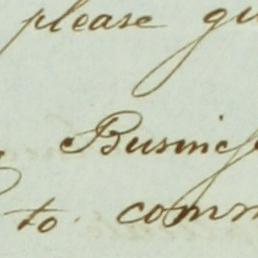 please gi
Busineſ
to com